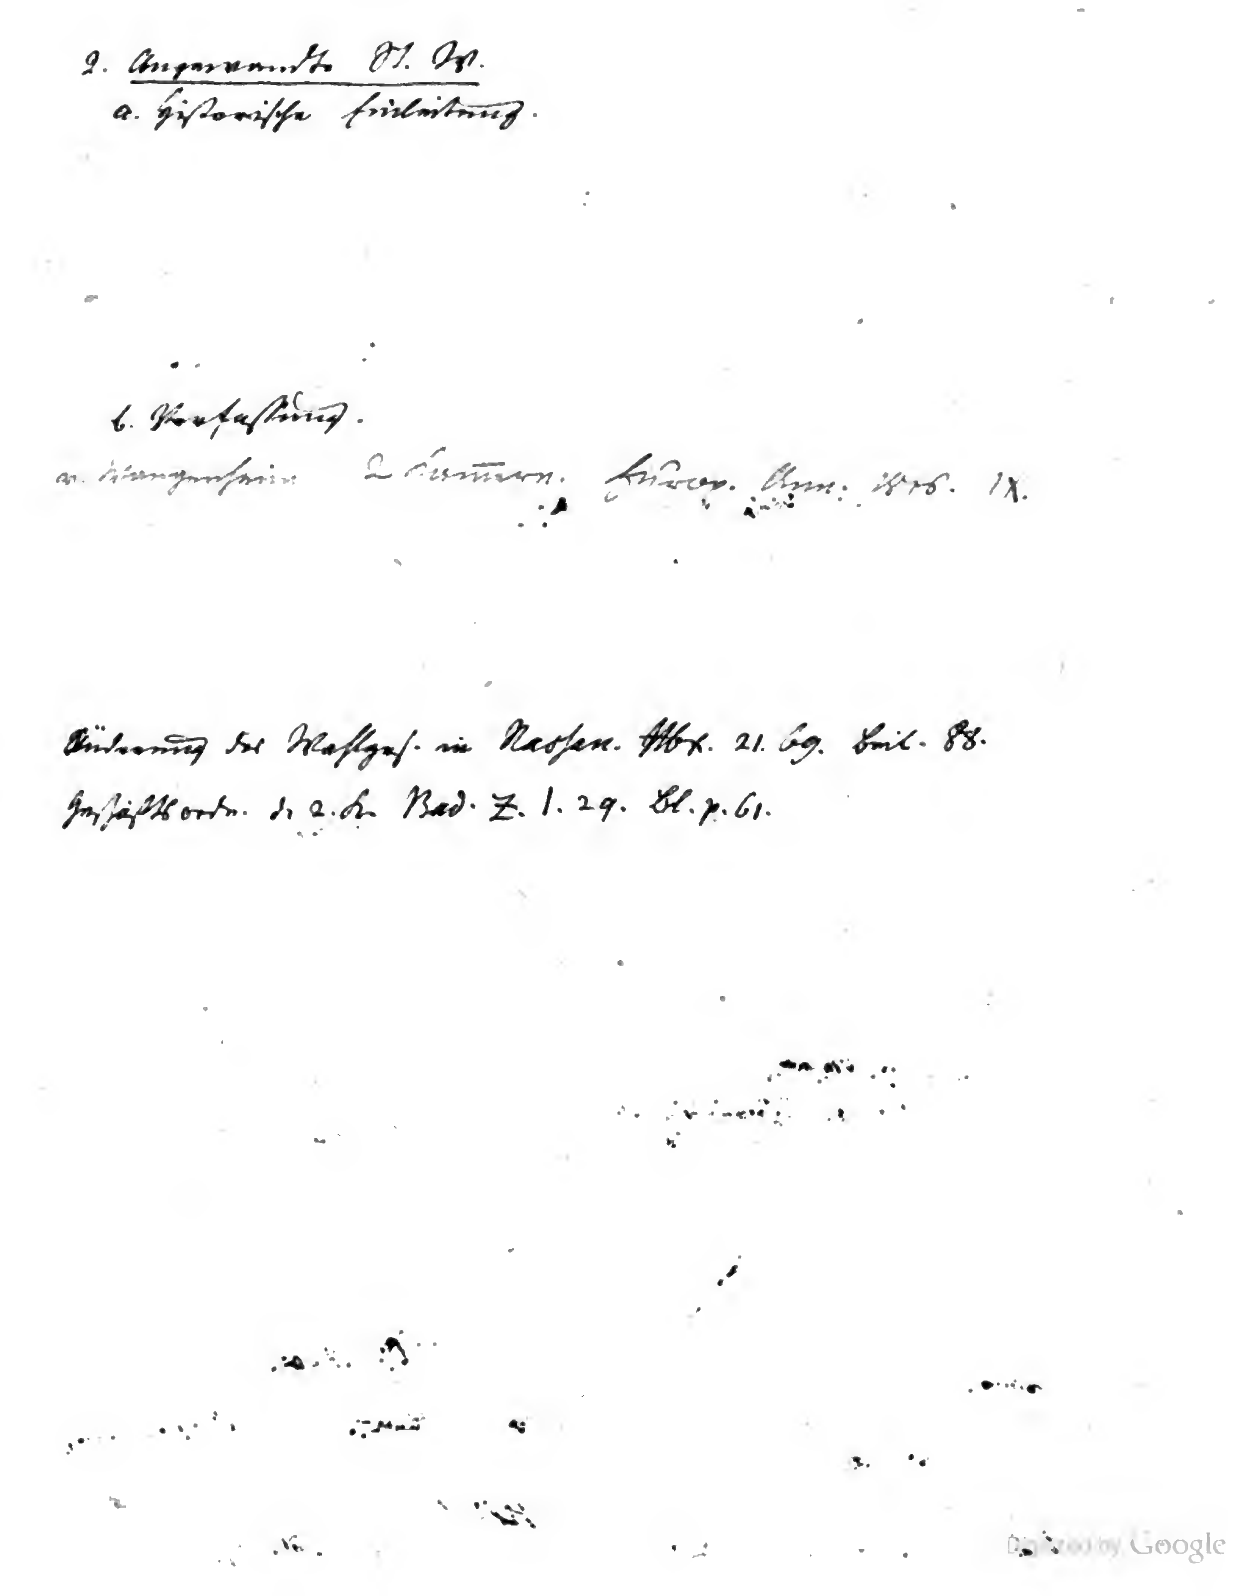 2. Angewandte St. W.
a. Historische Einleitung.
b. Verfassung.
v. Wangenheim 2 Kammern. Europ. Ann. IX.
Änderung des Wahlges. in Nassau. 21. 69. Beil. 88.
Geschäftsordn. d. 2. K. Bad. Z. 1. 29. Bl. p. 61.
Digitized by Google